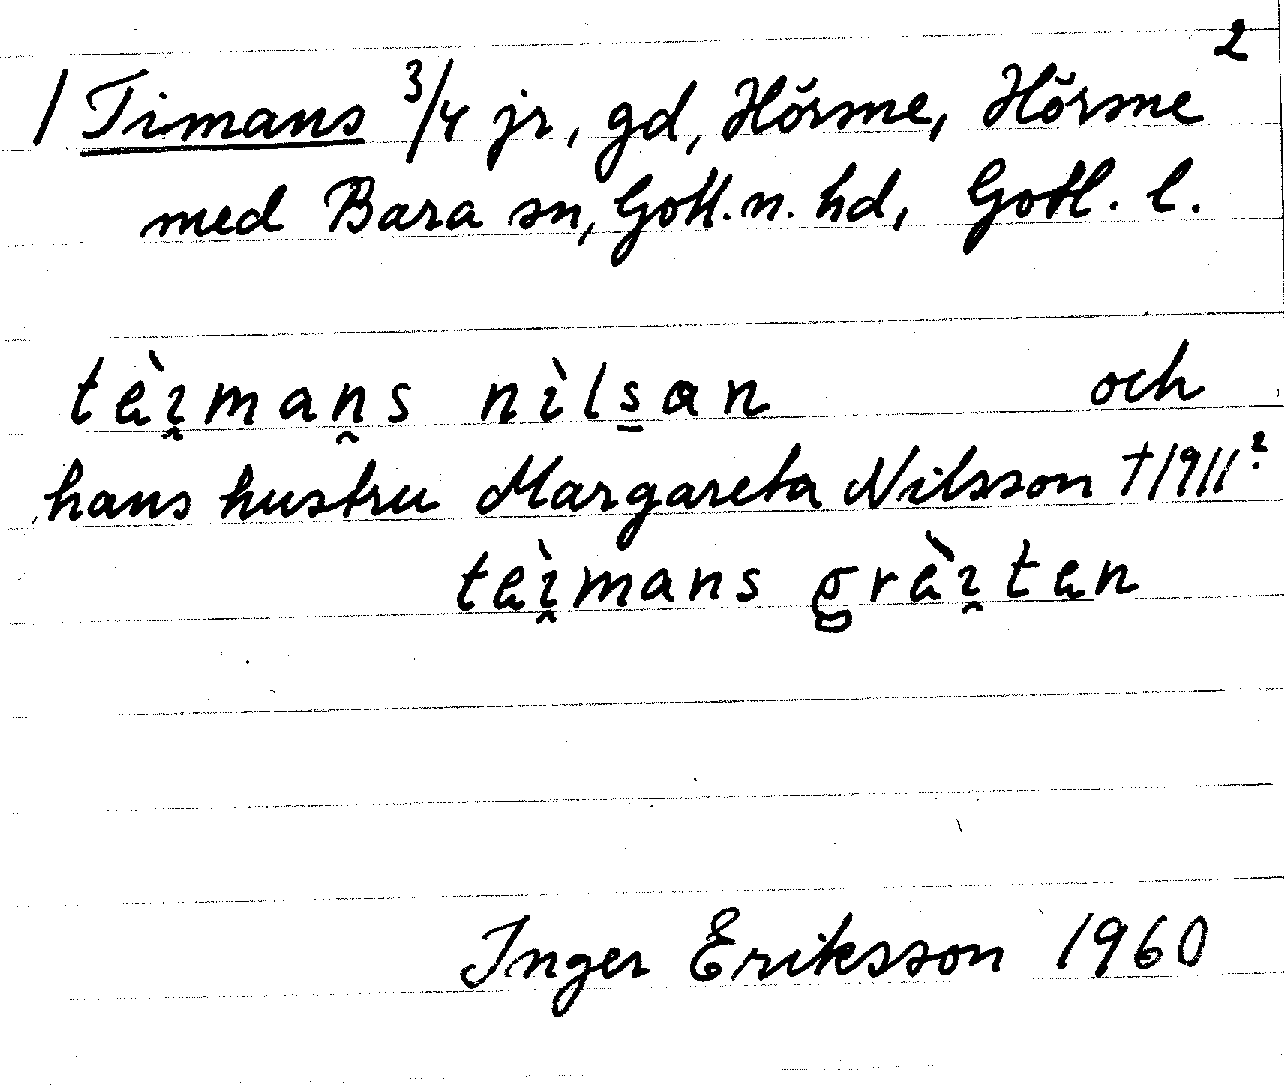 2
1 Timans 3/4 jr, gd, Hörsne, Hörsne
med Bara sn, Gotl. n. hd, Gotl. l.
tèi̯man̯s nìlsan och
hans hustru Margareta Nilsson †1911?
tèi̯mans grèi̯ten
Inger Eriksson 1960